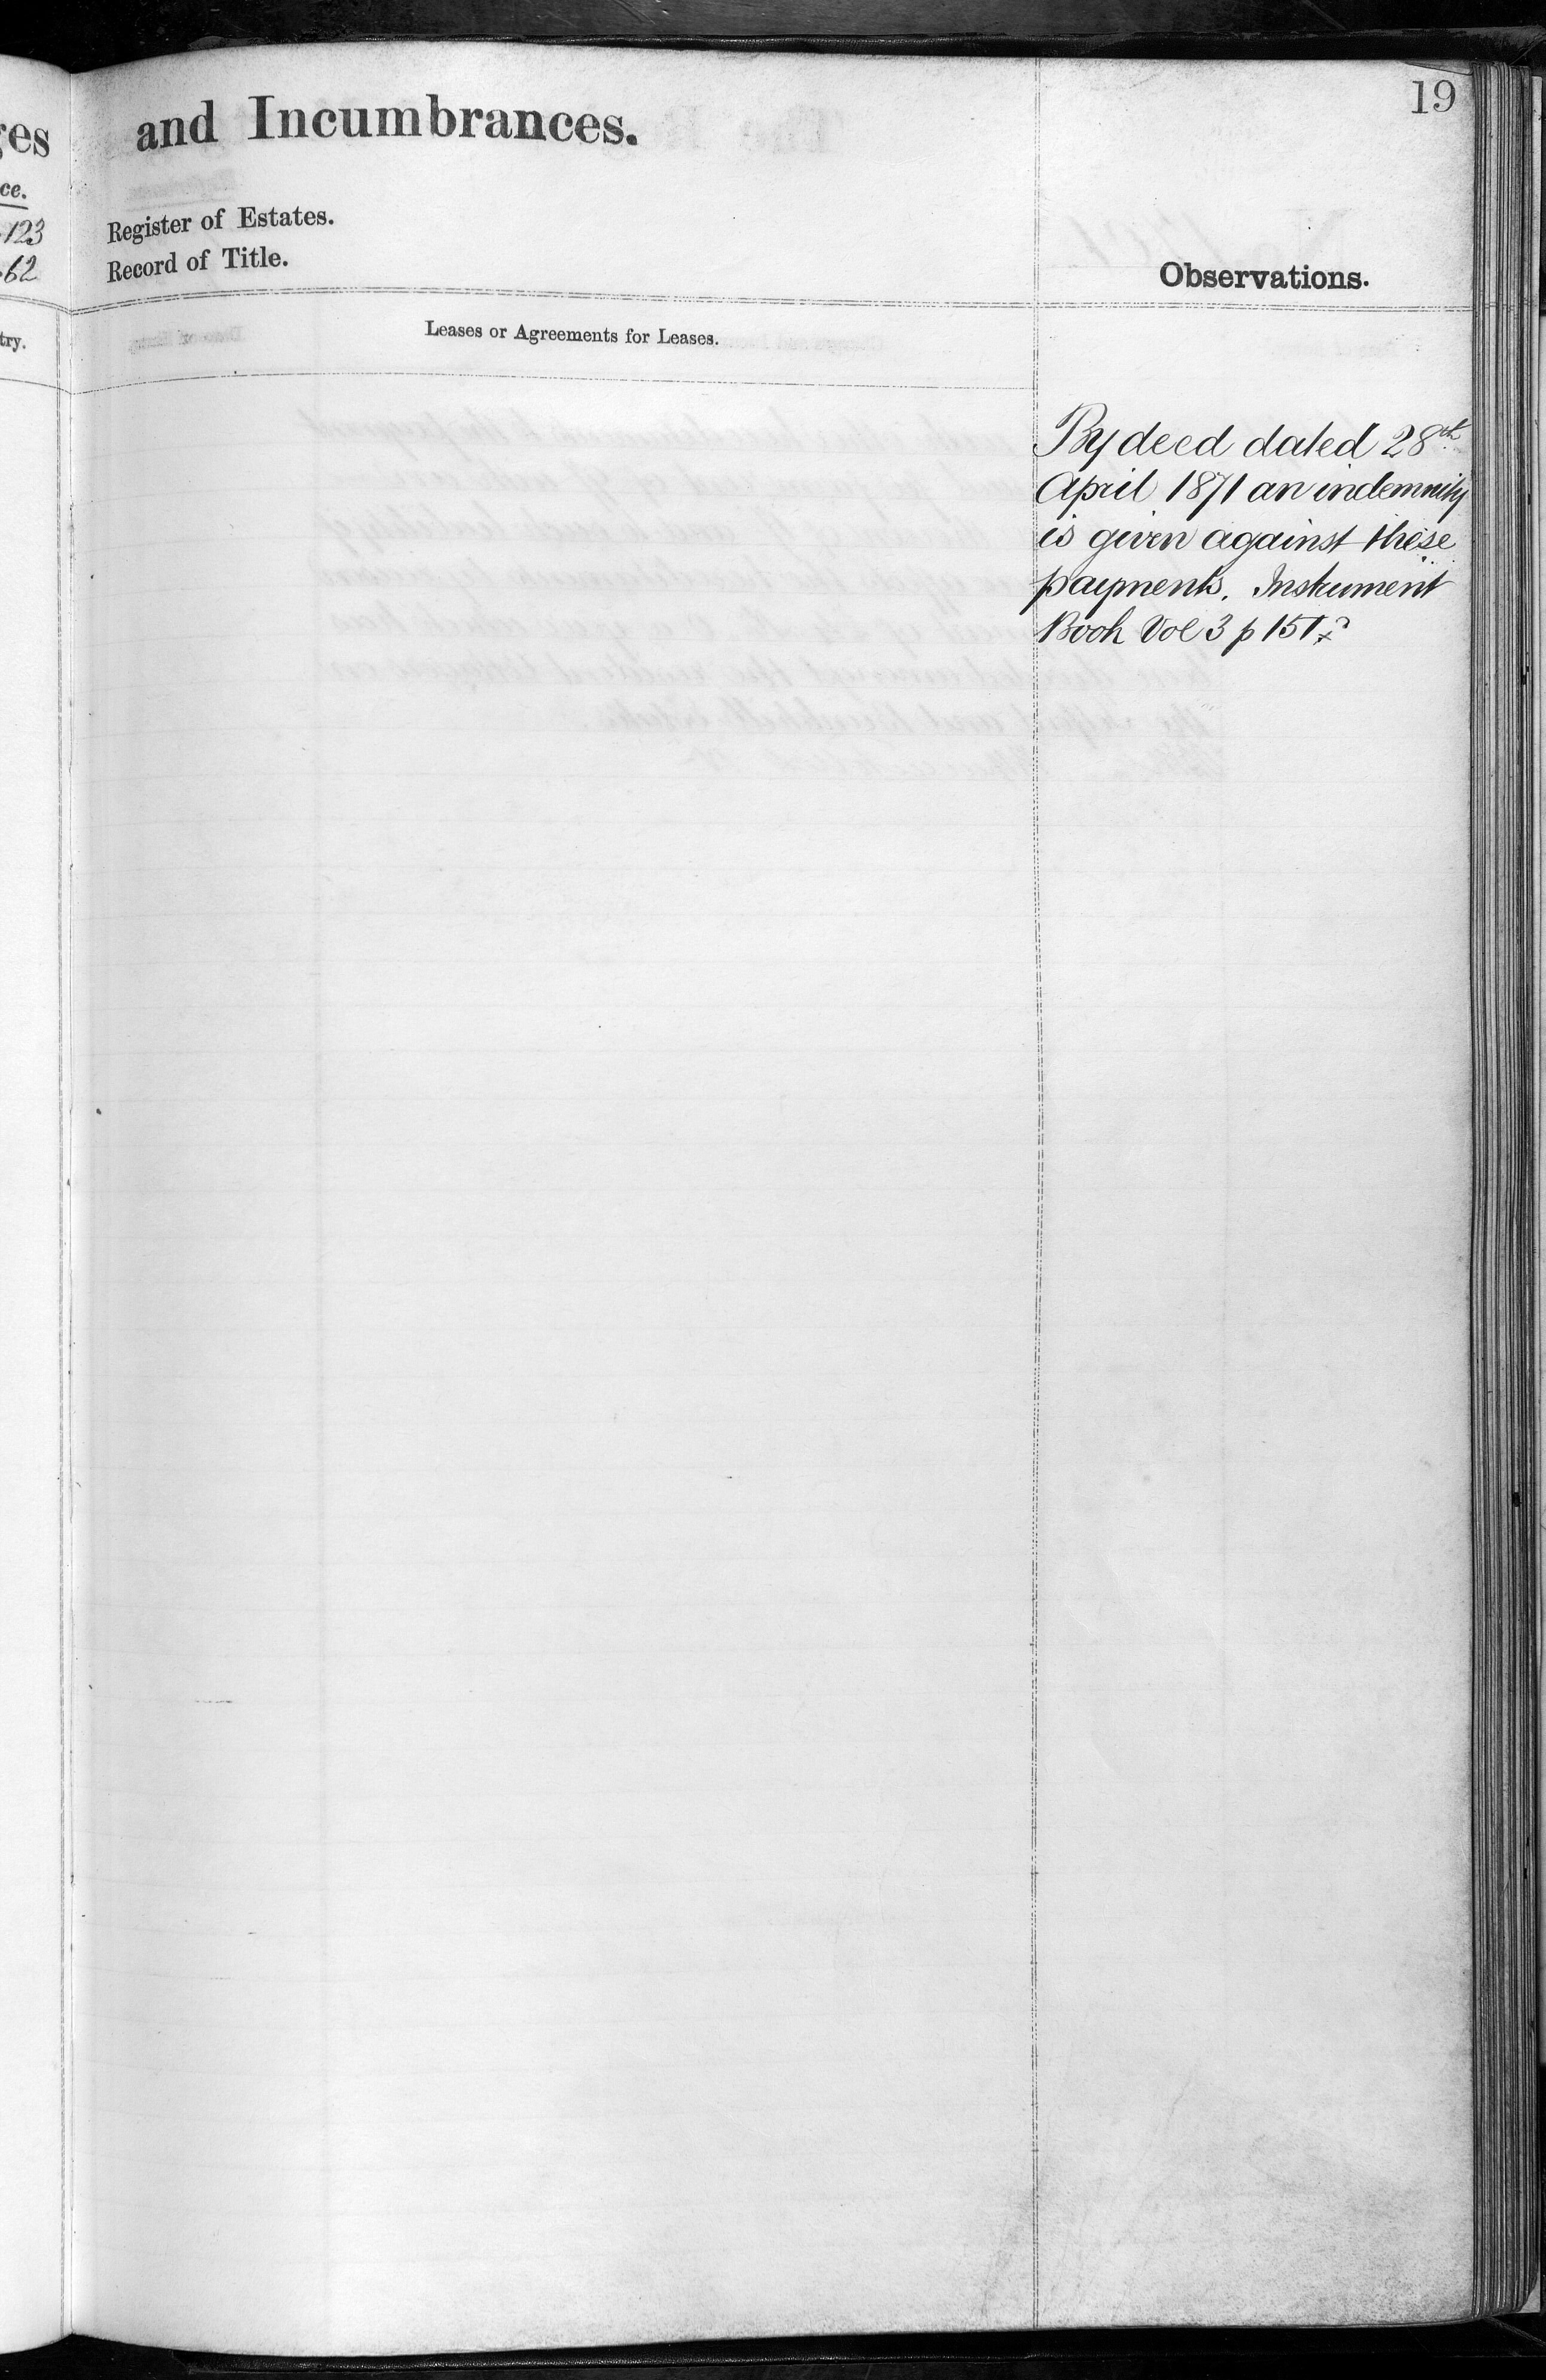 19
ges and Incumbrances.
ce.
123 Register of Estates.
62 Record of Title.
Observations.
try.
Leases or Agreements for Leases.
By deed dated 28th
April 1871 an indemnity
is given against these
payments. Instrument
Book Vol 3 p 151